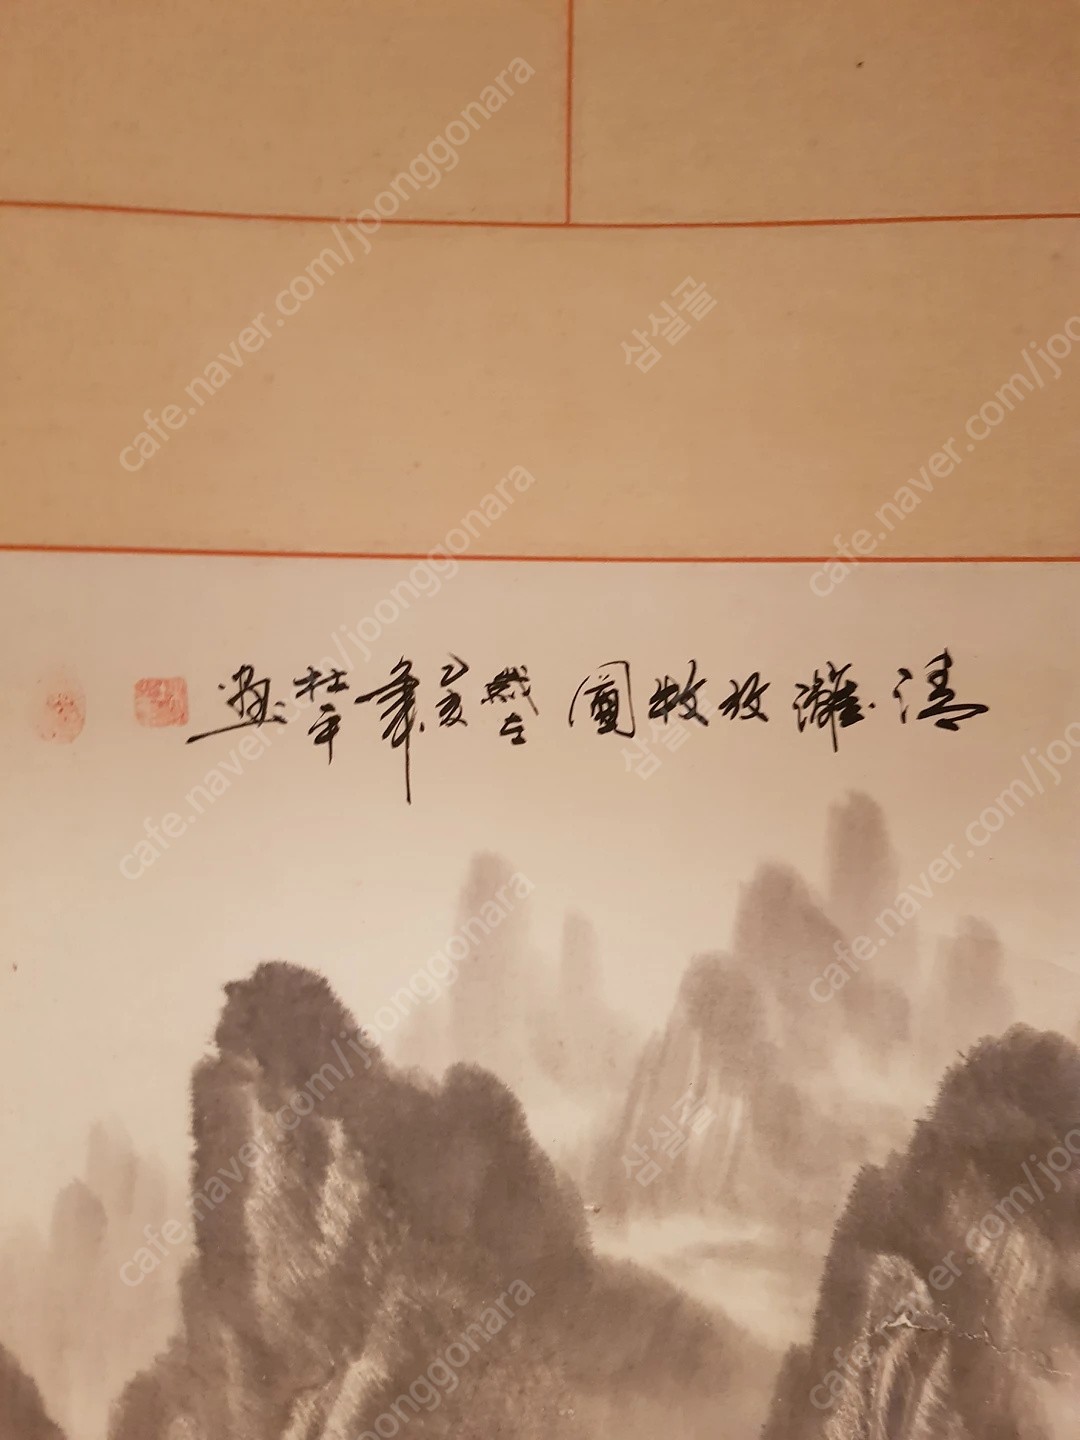 清灕放牧圖 歲在乙亥年杜平画
cafe.naver.com/joonggonara
삼실골
cafe.naver.com/joonggonara
cafe.naver.com/joonggonara
삼실골
cafe.naver.com/joonggonara
cafe.naver.com/joonggonara
삼실골
cafe.naver.com/joonggonara
cafe.naver.com/joonggonara